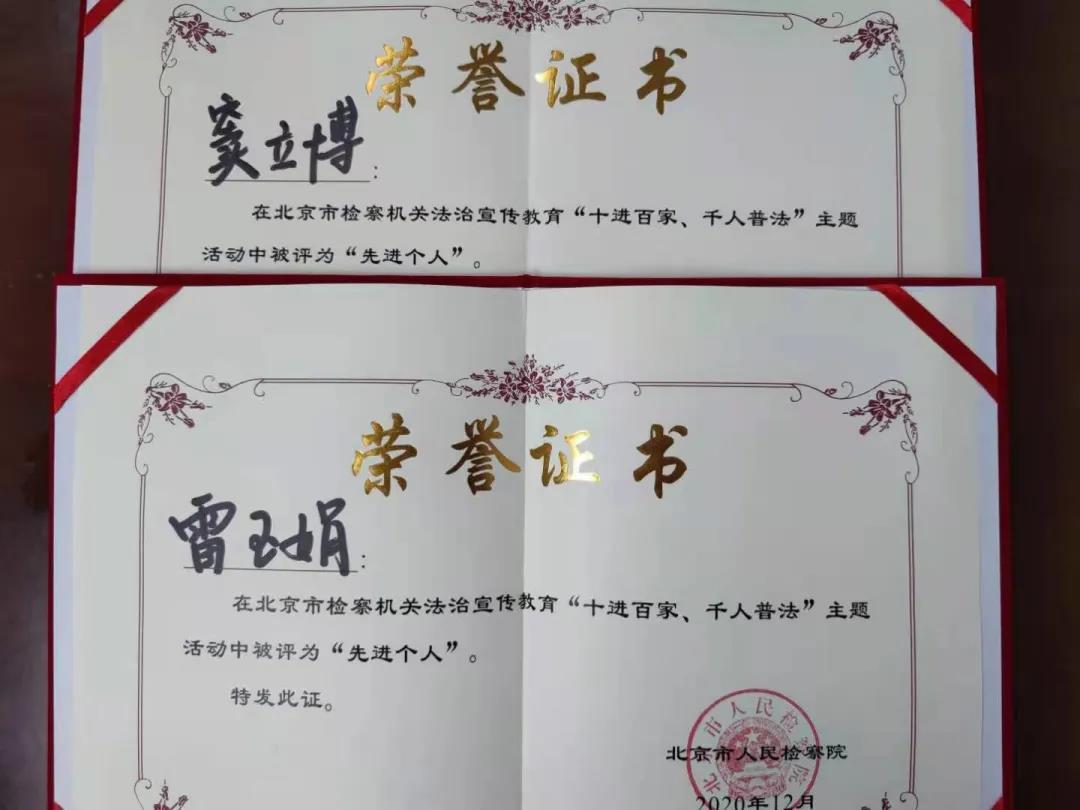 荣誉证书
窦立博：
在北京市检察机关法治宣传教育“十进百家、千人普法”主题
活动中被评为“先进个人”。
荣誉证书
雷玉娟：
在北京市检察机关法治宣传教育“十进百家、千人普法”主题
活动中被评为“先进个人”。
特发此证。
北京市人民检察院
北京市人民检察院
2020年12月